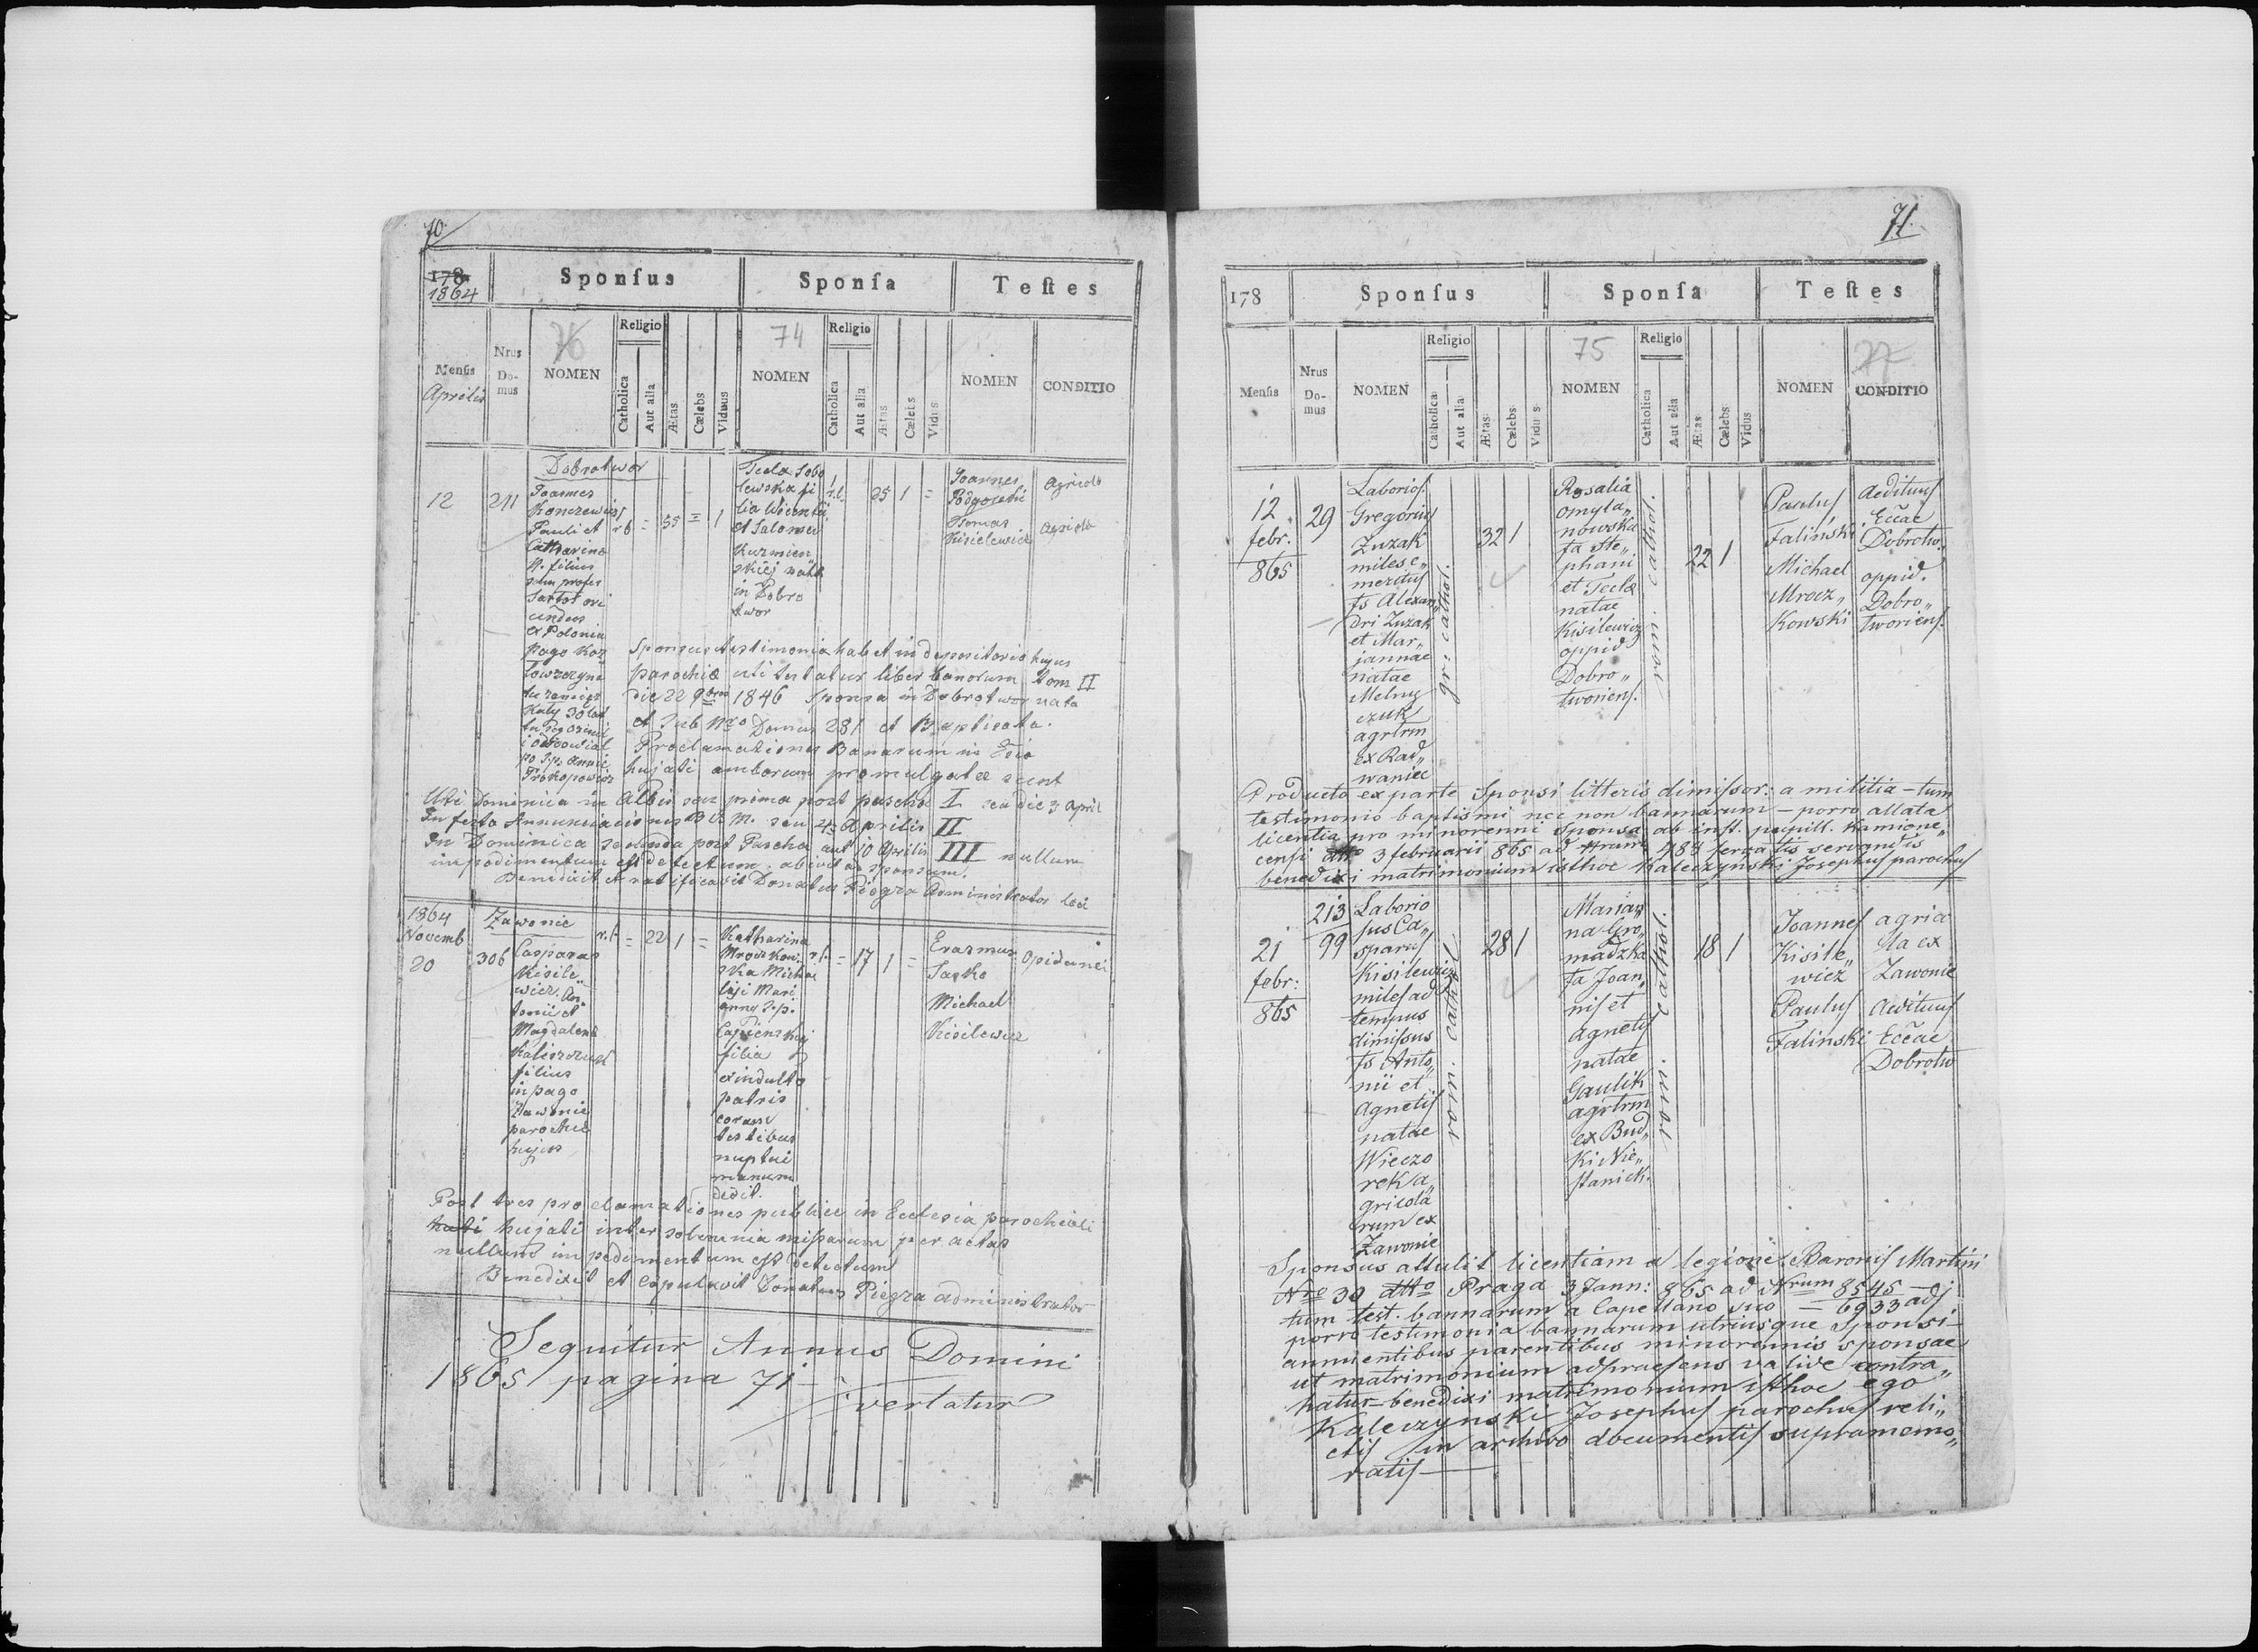 70
178
1864
Sponſus
Sponſa
Teſtes
Menſis
Aprilis
Nrus
Do-
mus
76
NOMEN
Religio
Catholica
Aut alia
Ætas
Cælebs
Viduus
74
NOMEN
Religio
Catholica
Aut alia
Ætas
Cælebs
Vidus
NOMEN
CONDITIO
12
211
Dobrotwor
Joannes
Konczewicz
Pauli et
Catharina
N. filius
sum profes
Sartor ori
undus
ex Polonia
pago Koz
lowszczyna
Katy 30 lat
po Sp. Annie
Prokopowicz
35 = 1
Tecla Sobo
lewska fi
lia Wicentii
et Salomei
Kuzmien
skiej natæ
in Dobro
twor
25 1 =
Joannes
Podgorski
Tomas
Kisielewicz
agricola
agricola
Sponsus testimonia habet in depositorio hujus
parochiæ uti testatur liber banorum tom II
die 22 9bris 1846 Sponsa in Dobrotwor nata
et sub Nro Domus 281 et Baptisata.
Proclamationes Banarum in Eccia
hujati amborum promulgatæ sunt
Uti Dominica in Albis seu prima post pascha I seu die 3 April
In festo Annunciacionis B.V.M. seu 4 Aprilis II
In Dominica secunda post Pascha aut 10 Aprilis III nullum
impedimentum est detectum. abivit ad sponsam.
Benedixit et ratificavit Donatus Piegza Administrator loci
1864
Novemb
20
Zawonie
306
Casparus
Kisile
wicz. An
tonii et
Magdalena
Kaliszczuk
filius
in pago
Zawonie
parochiæ
hujus
r.l. = 22 1 =
Katharina
Mroczkow
ska Micha
lis i Mari
anny
filia
ex indulto
patris
coram
testibus
nuptui
manum
dedit.
r.l. = 17 1 =
Erazmus
Sasko
Michael
Kisilewicz
Opidanei
Post tres proclamationes publice in Ecclesia parochiali
hujati inter solemnia missarum per actas
nullum impedimentum est detectum
Benedixit et Copulavit Donatus Piegza administrator
Sequitur Annus Domini
1865 pagina 71
vertatur
71.
178
Sponſus
Sponſa
Teſtes
Menſis
Nrus
Do-
mus
NOMEN
Religio
Catholica
Aut alia
Ætas
Cælebs
Vidus
75
NOMEN
Religio
Catholica
Aut alia
Ætas
Cælebs
Vidus
NOMEN
77
CONDITIO
12
febr.
865
29
Laborios.
Gregorius
Zuzak
miles e„
meritus
fs Alexan„
dri Zuzak
et Mar„
jannae
natae
Melny
czuk
agrlrm
ex Rad„
waniec
gr: cathol.
32 1
Rosalia
omyla„
nowska
fa Ste„
phani
et Teclæ
natae
Kisilewicz
oppid.
Dobro„
tworiens.
rom. cathol.
22 1
Paulus
Falinski
Michael
Mrocz„
Kowski
Aeditus
Eccae
Dobrotw.
oppid.
Dobro„
tworiens.
Producto ex parte Sponsi litteris dimissor. a militia – tum
testimonio baptismi nec non bannarum – porro allata
licentia pro minorenni sponsa ab inst. pupill. Kamione„
censi dtto 3 februarii 865 ad Nrum 484 servatis servandis
benedixi matrimonium isthoc Kaleczynski Josephus parochus
21
febr:
865
213
99
Laborio
sus Ca„
sparus
Kisilewicz
miles ad
tempus
dimissus
fs Anto„
nii et
Agnetis
natae
Wieczo
rek a„
gricola
rum ex
Zawonie
rom. cathol.
28 1
Marian
na Gro„
madzka
fa Joan„
nis et
Agnetis
natae
Gaulik
agrlrm
ex Bud„
ki Nie„
stanick.
rom. cathol.
18 1
Joannes
Kisile„
wicz
Paulus
Falinski
agrico
la ex
Zawonie
Aeditus
Eccae
Dobrotw
Sponsus attulit licentiam a legione Baronis Martini
Nro 30 dtto Praga 3 Jann: 865 ad Nrum 8545 –
tum test. bannarum a Capellano suo = 6933 adj
porro testimonia bannarum utriusque Sponsi –
annuentibus parentibus minorennis sponsae
ut matrimonium adpraesens valide contra„
hatur – benedixi matrimonium isthoc ego
Kaleczynski Josephus parochus reli„
ctis in archivo documentis supramemo„
ratis —